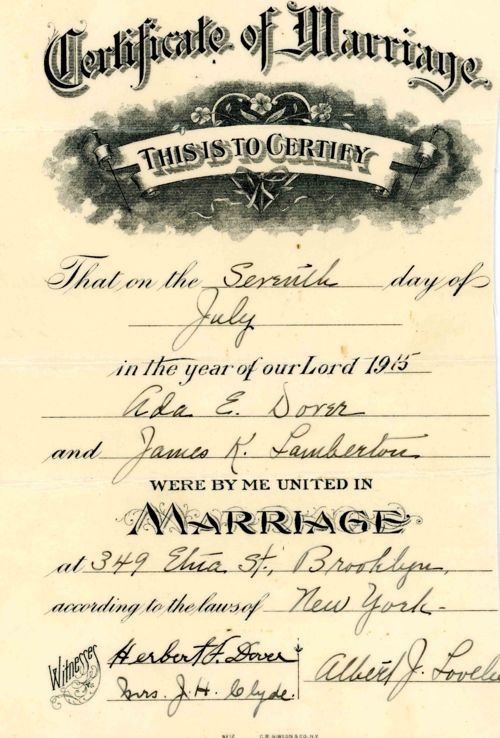 Certificate of Marriage
THIS IS TO CERTIFY
That on the Seventh day of
July
in the year of our Lord 1915
Ada E. Dover
and James K. Lamberton
WERE BY ME UNITED IN
MARRIAGE
at 349 Etna St., Brooklyn,
according to the laws of New York-
Witnesses
Herbert F. Dover
Mrs. J. H. Clyde.
Albert J.